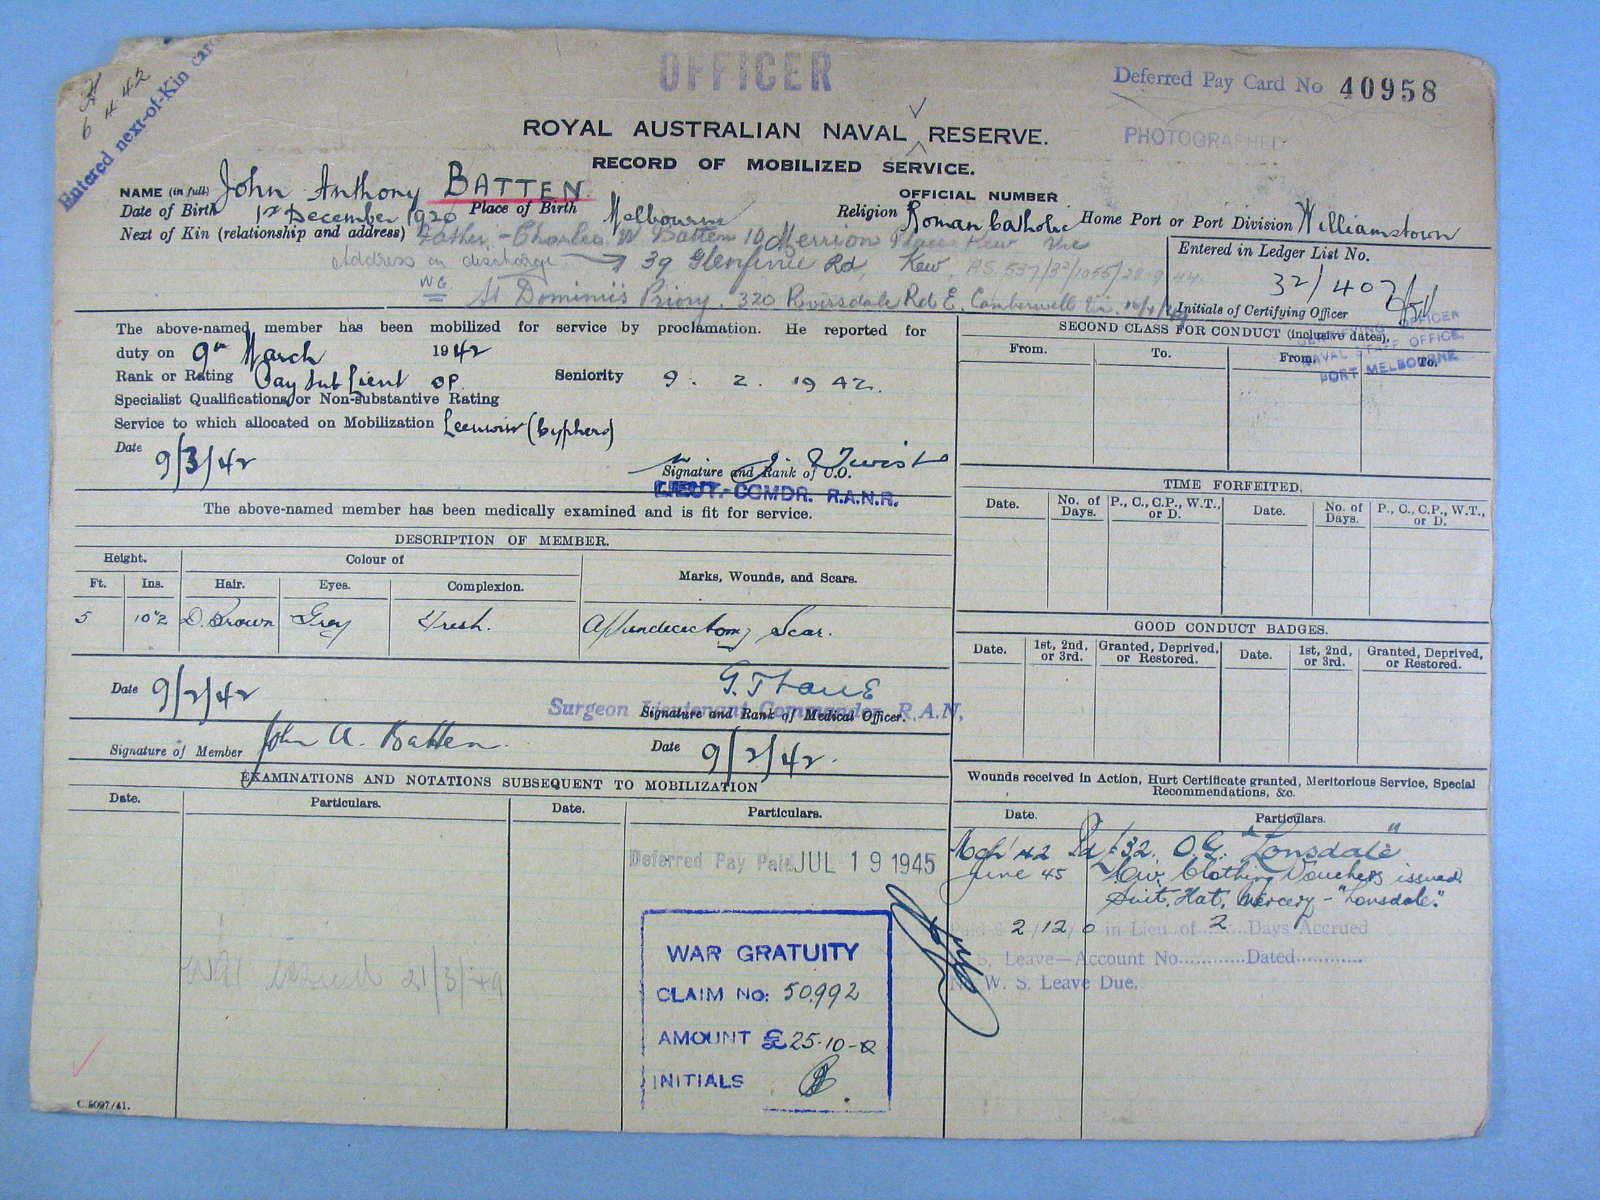 OFFICER
Deferred Pay Card No 40958
6 4 42
Entered next-of-Kin card
PHOTOGRAPHED
ROYAL AUSTRALIAN NAVAL RESERVE.
RECORD OF MOBILIZED SERVICE.
NAME (in full) John Anthony BATTEN
OFFICIAL NUMBER
Date of Birth 1st December 1920 Place of Birth Melbourne Religion Roman Catholic Home Port or Port Division Williamstown
Next of Kin (relationship and address) Father - Charles W Batten 10 Merrion Place Kew Vic
Address on discharge 39 Glenfinnie Rd Kew.
WG St Dominic's Priory. 320 Riversdale Rd E. Camberwell Vic.
Entered in Ledger List No.
32/407
Initials of Certifying Officer
CERTIFYING OFFICER
NAVAL STAFF OFFICE,
PORT MELBOURNE
The above-named member has been mobilized for service by proclamation. He reported for
duty on 9th March 1942
Rank or Rating Pay Sub Lieut OP. Seniority 9. 2. 1942.
Specialist Qualifications or Non-substantive Rating
Service to which allocated on Mobilization Leeuwin (Cyphers)
Date 9/3/42
Signature and Rank of C.O.
LIEUT.-COMDR. R.A.N.R.
The above-named member has been medically examined and is fit for service.
DESCRIPTION OF MEMBER.
Height. Colour of Marks, Wounds, and Scars.
Ft. Ins. Hair. Eyes. Complexion.
5 10½ D. Brown Grey Fresh. Appendicectomy Scar.
Date 9/2/42
Surgeon Lieutenant Commander R.A.N.
Signature and Rank of Medical Officer.
Signature of Member John A. Batten. Date 9/2/42.
EXAMINATIONS AND NOTATIONS SUBSEQUENT TO MOBILIZATION
Date. Particulars. Date. Particulars.
Deferred Pay Paid JUL 19 1945
WAR GRATUITY
CLAIM No: 50992
AMOUNT £25-10-0
INITIALS
issued 21/3/49
C.5097/41.
SECOND CLASS FOR CONDUCT (inclusive dates).
From. To. From. To.
TIME FORFEITED.
Date. No. of Days. P., C., C.P., W.T., or D. Date. No. of Days. P., C., C.P., W.T., or D.
GOOD CONDUCT BADGES.
Date. 1st, 2nd, or 3rd. Granted, Deprived, or Restored. Date. 1st, 2nd, or 3rd. Granted, Deprived, or Restored.
Wounds received in Action, Hurt Certificate granted, Meritorious Service, Special
Recommendations, &c.
Date. Particulars.
Mch '42 Pd £32. O.G. "Lonsdale"
June 45 Civ. Clothing Vouchers issued
Suit, Hat, Mercery - "Lonsdale".
Paid £ 2/12/0 in Lieu of 2 Days Accrued
W. S. Leave—Account No............Dated............
No W. S. Leave Due.